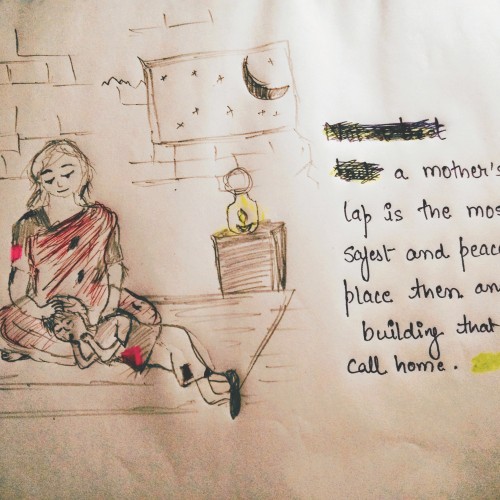 a mother's
lap is the mos
safest and peace
place then an
building that
call home.